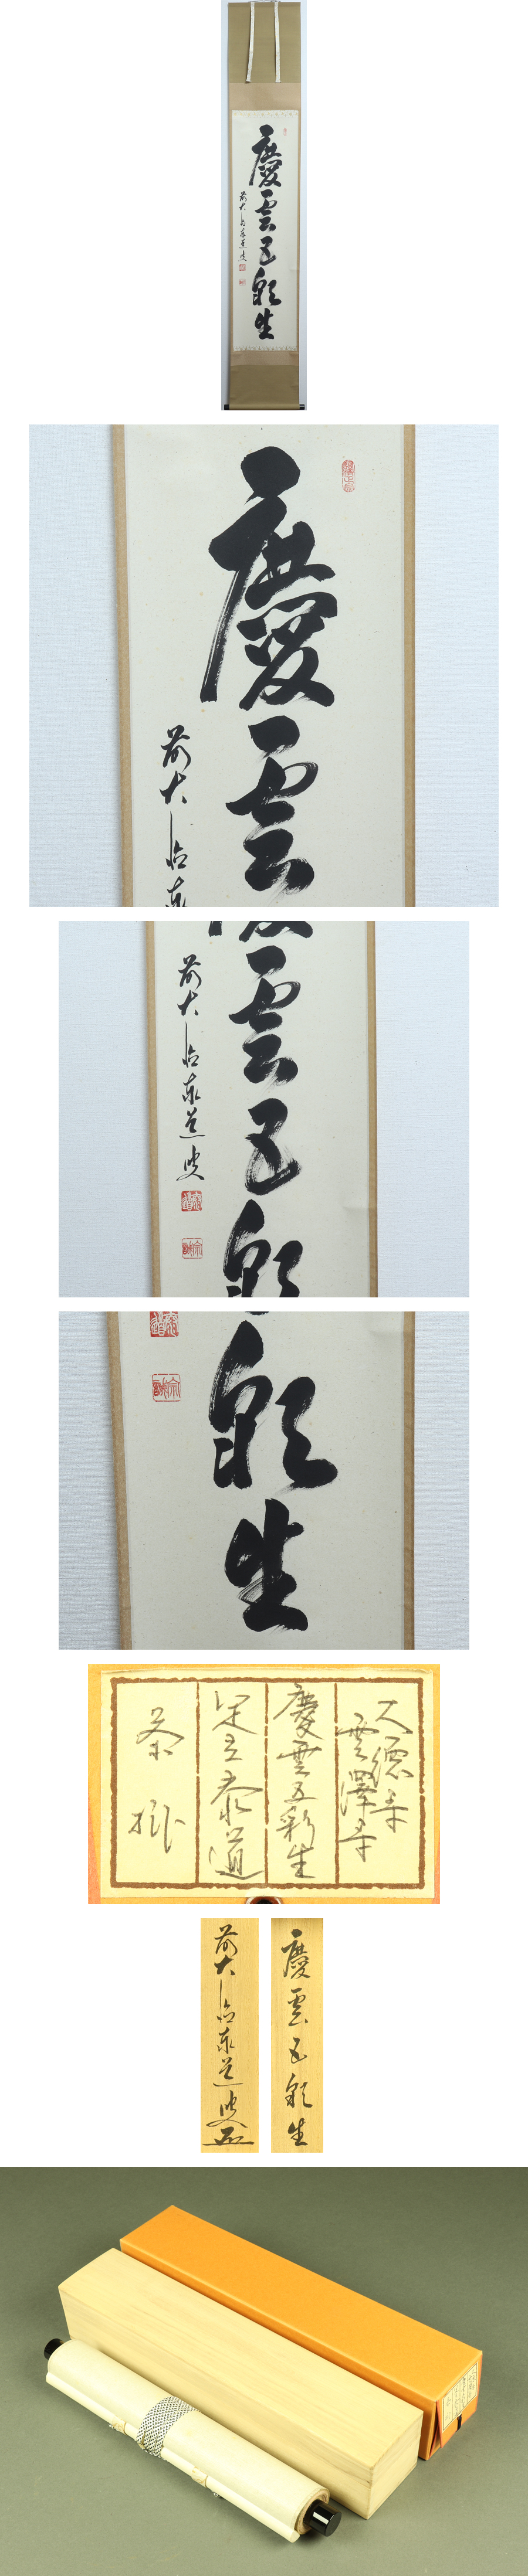 慶雲五彩生
前大德泰道叟
慶雲
前大德泰
雲五彩
前大德泰道叟
彩生
大德寺
雲澤寺
慶雲五彩生
足立泰道
茶掛
慶雲五彩生
前大德泰道叟